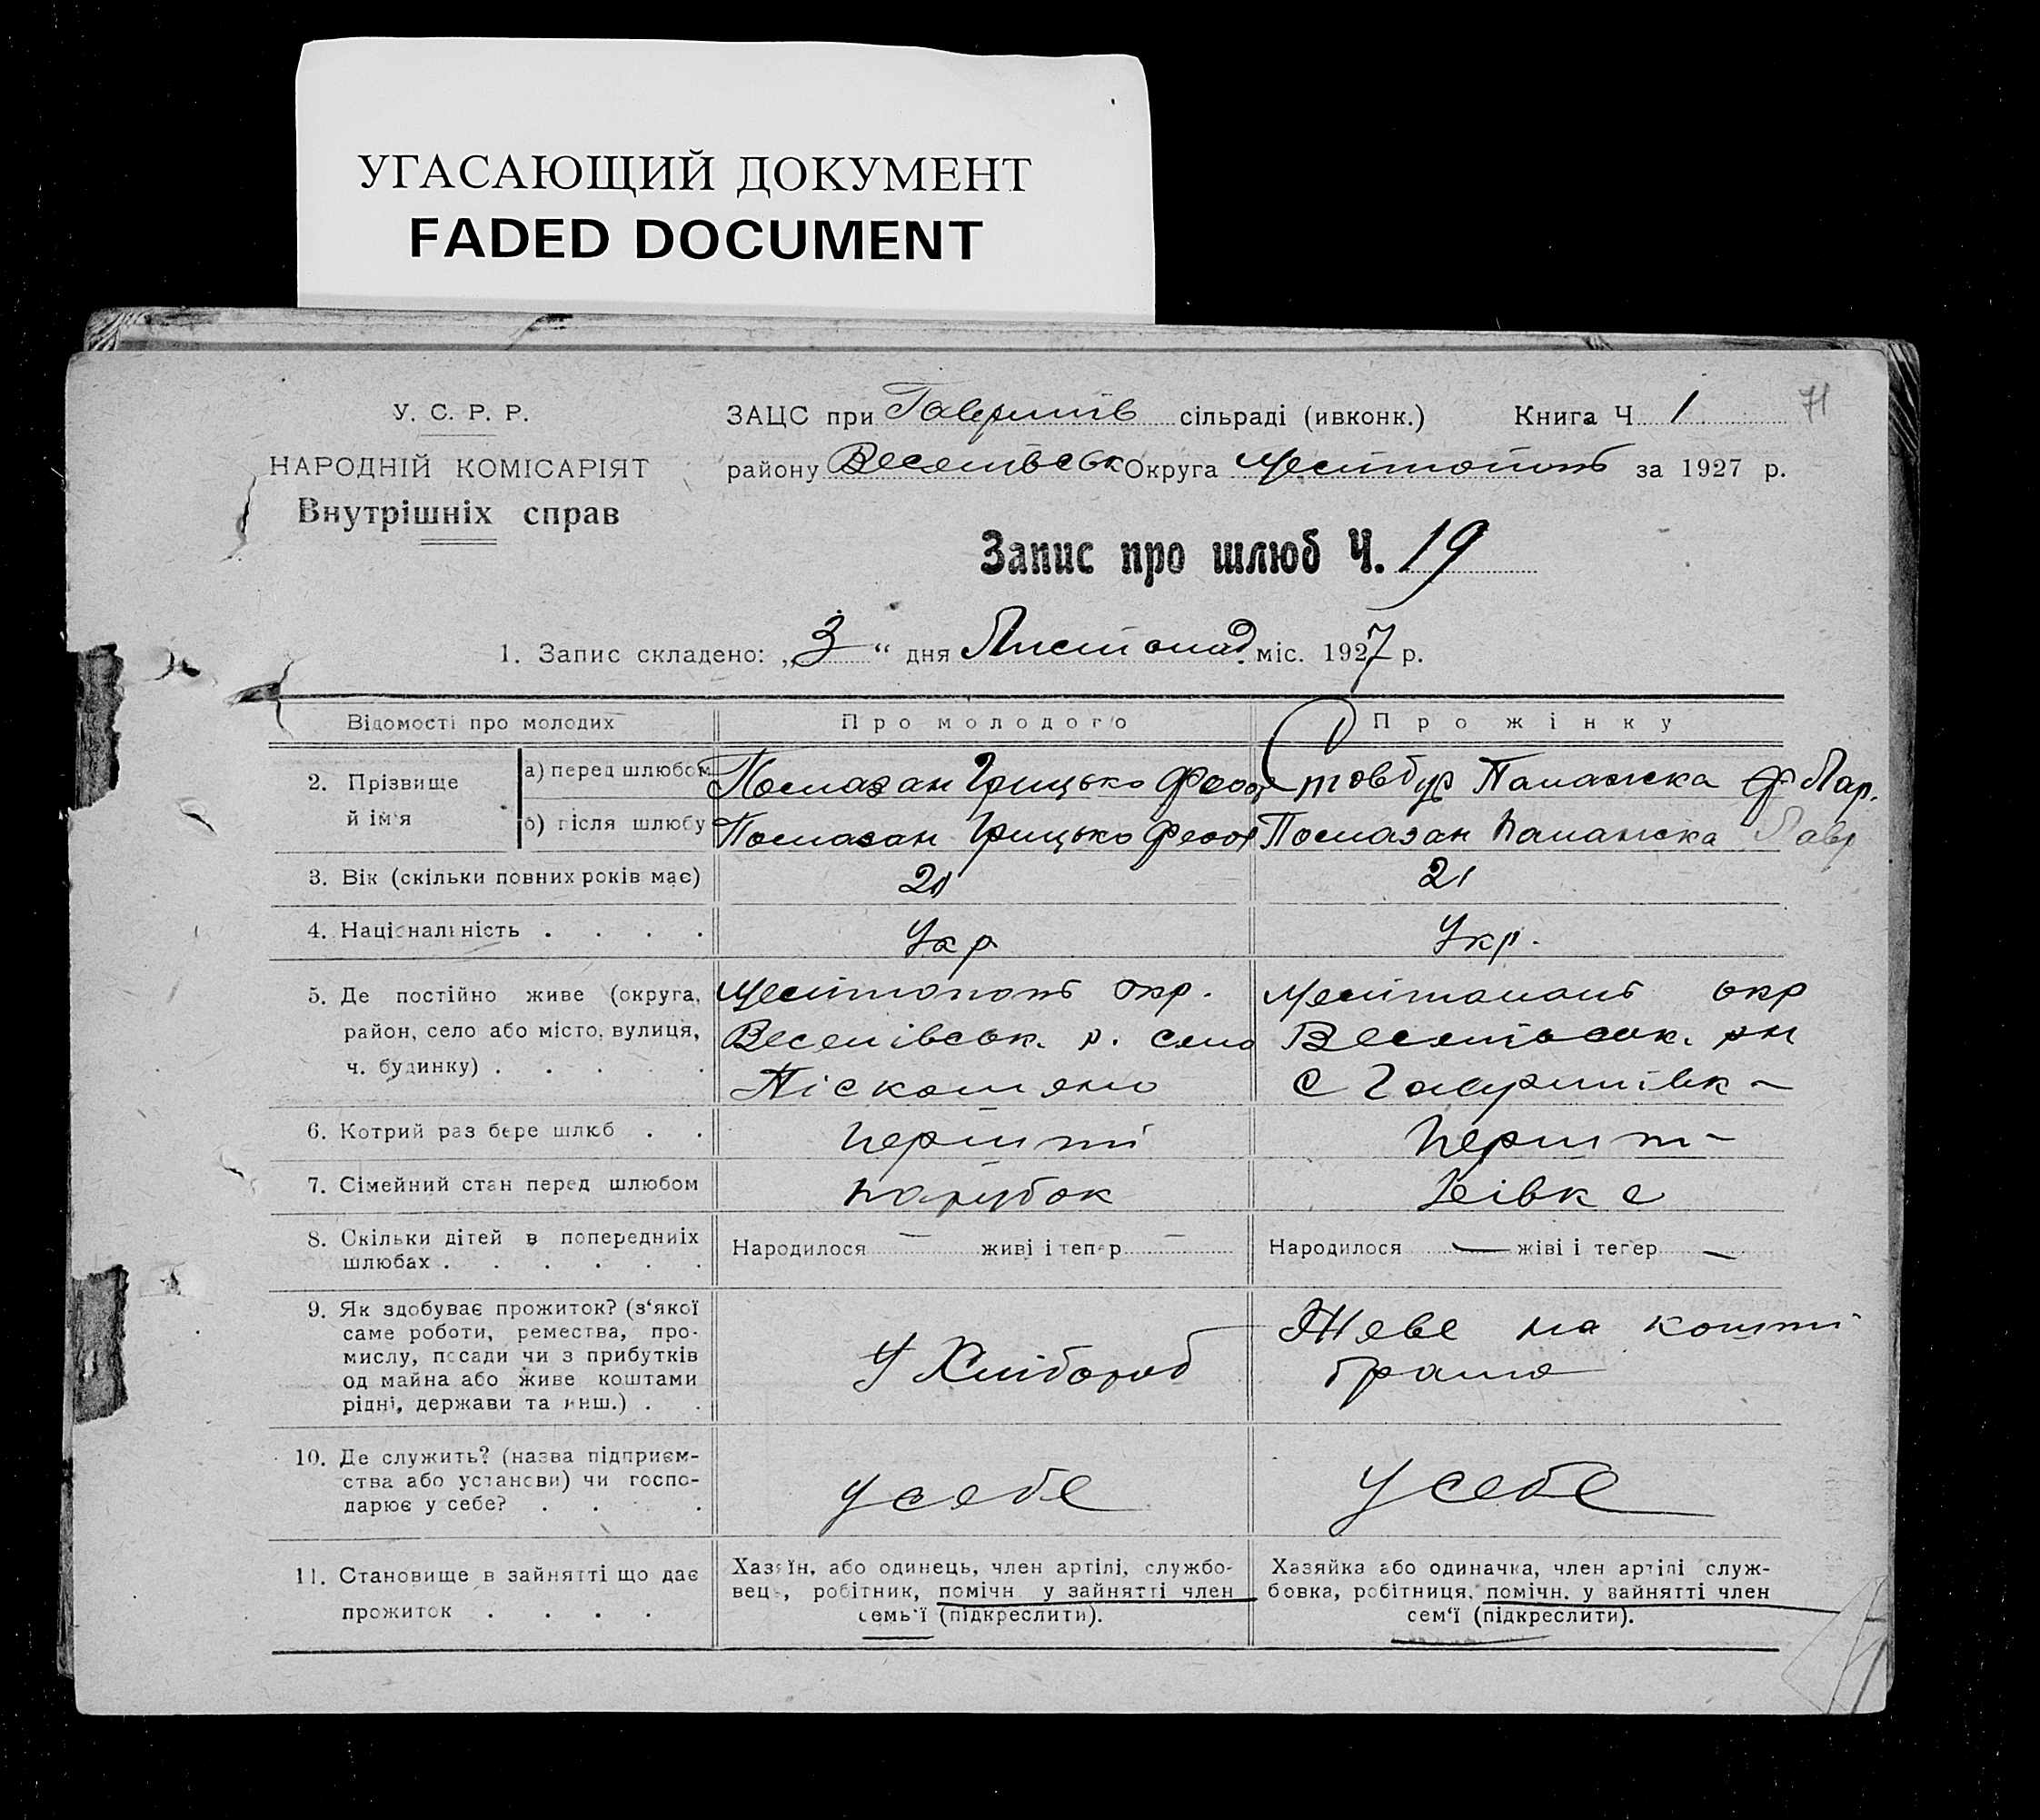 УГАСАЮЩИЙ ДОКУМЕНТ
FADED DOCUMENT
71
У. С. Р. Р.
НАРОДНІЙ КОМІСАРІЯТ
Внутрішніх справ
ЗАЦС при Гаврилів сільраді (ивконк.) Книга Ч 1
району Веселівськ Округа Мелітополь за 1927 р.
Запис про шлюб Ч. 19
1. Запис складено: „3“ дня Листопад міс. 1927 р.
Відомості про молодих Про молодого Про жінку
2. Прізвище й ім'я
а) перед шлюбом Помазан Грицько Феод Стовбур Палажка Лар.
б) після шлюбу Помазан Грицько Феод Помазан Палажка Лавр
3. Вік (скільки повних років має) 20 21
4. Національність . . . . Укр Укр.
5. Де постійно живе (округа, Мелітополь окр. Мелітополь окр
район, село або місто, вулиця, Веселівськ. р. село Веселівськ. рн
ч. будинку) . . . . . с Гаврилівк
6. Котрий раз бере шлюб . . перший перш
7. Сімейний стан перед шлюбом парубок дівка
8. Скільки дітей в попередниіх Народилося — живі і тепер — Народилося — жіві і тепер —
шлюбах . . . . . .
9. Як здобуває прожиток? (з'якої Живе на кошти
саме роботи, ремества, про-
мислу, посади чи з прибутків У Хлібороб брата
од майна або живе коштами
рідні, держави та инш.) . .
10. Де служить? (назва підприєм-
ства або установи) чи госпо- у себе у себе
дарює у себе? . . .
11. Становище в зайнятті що дає Хазяїн, або одинець, член артілі, службо- Хазяйка або одиначка, член артілі служ-
прожиток . . . . вець, робітник, помічн у зайнятті член бовка, робітниця, помічн. у зайнятті член
семь'ї (підкреслити). сем'ї (підкреслити).